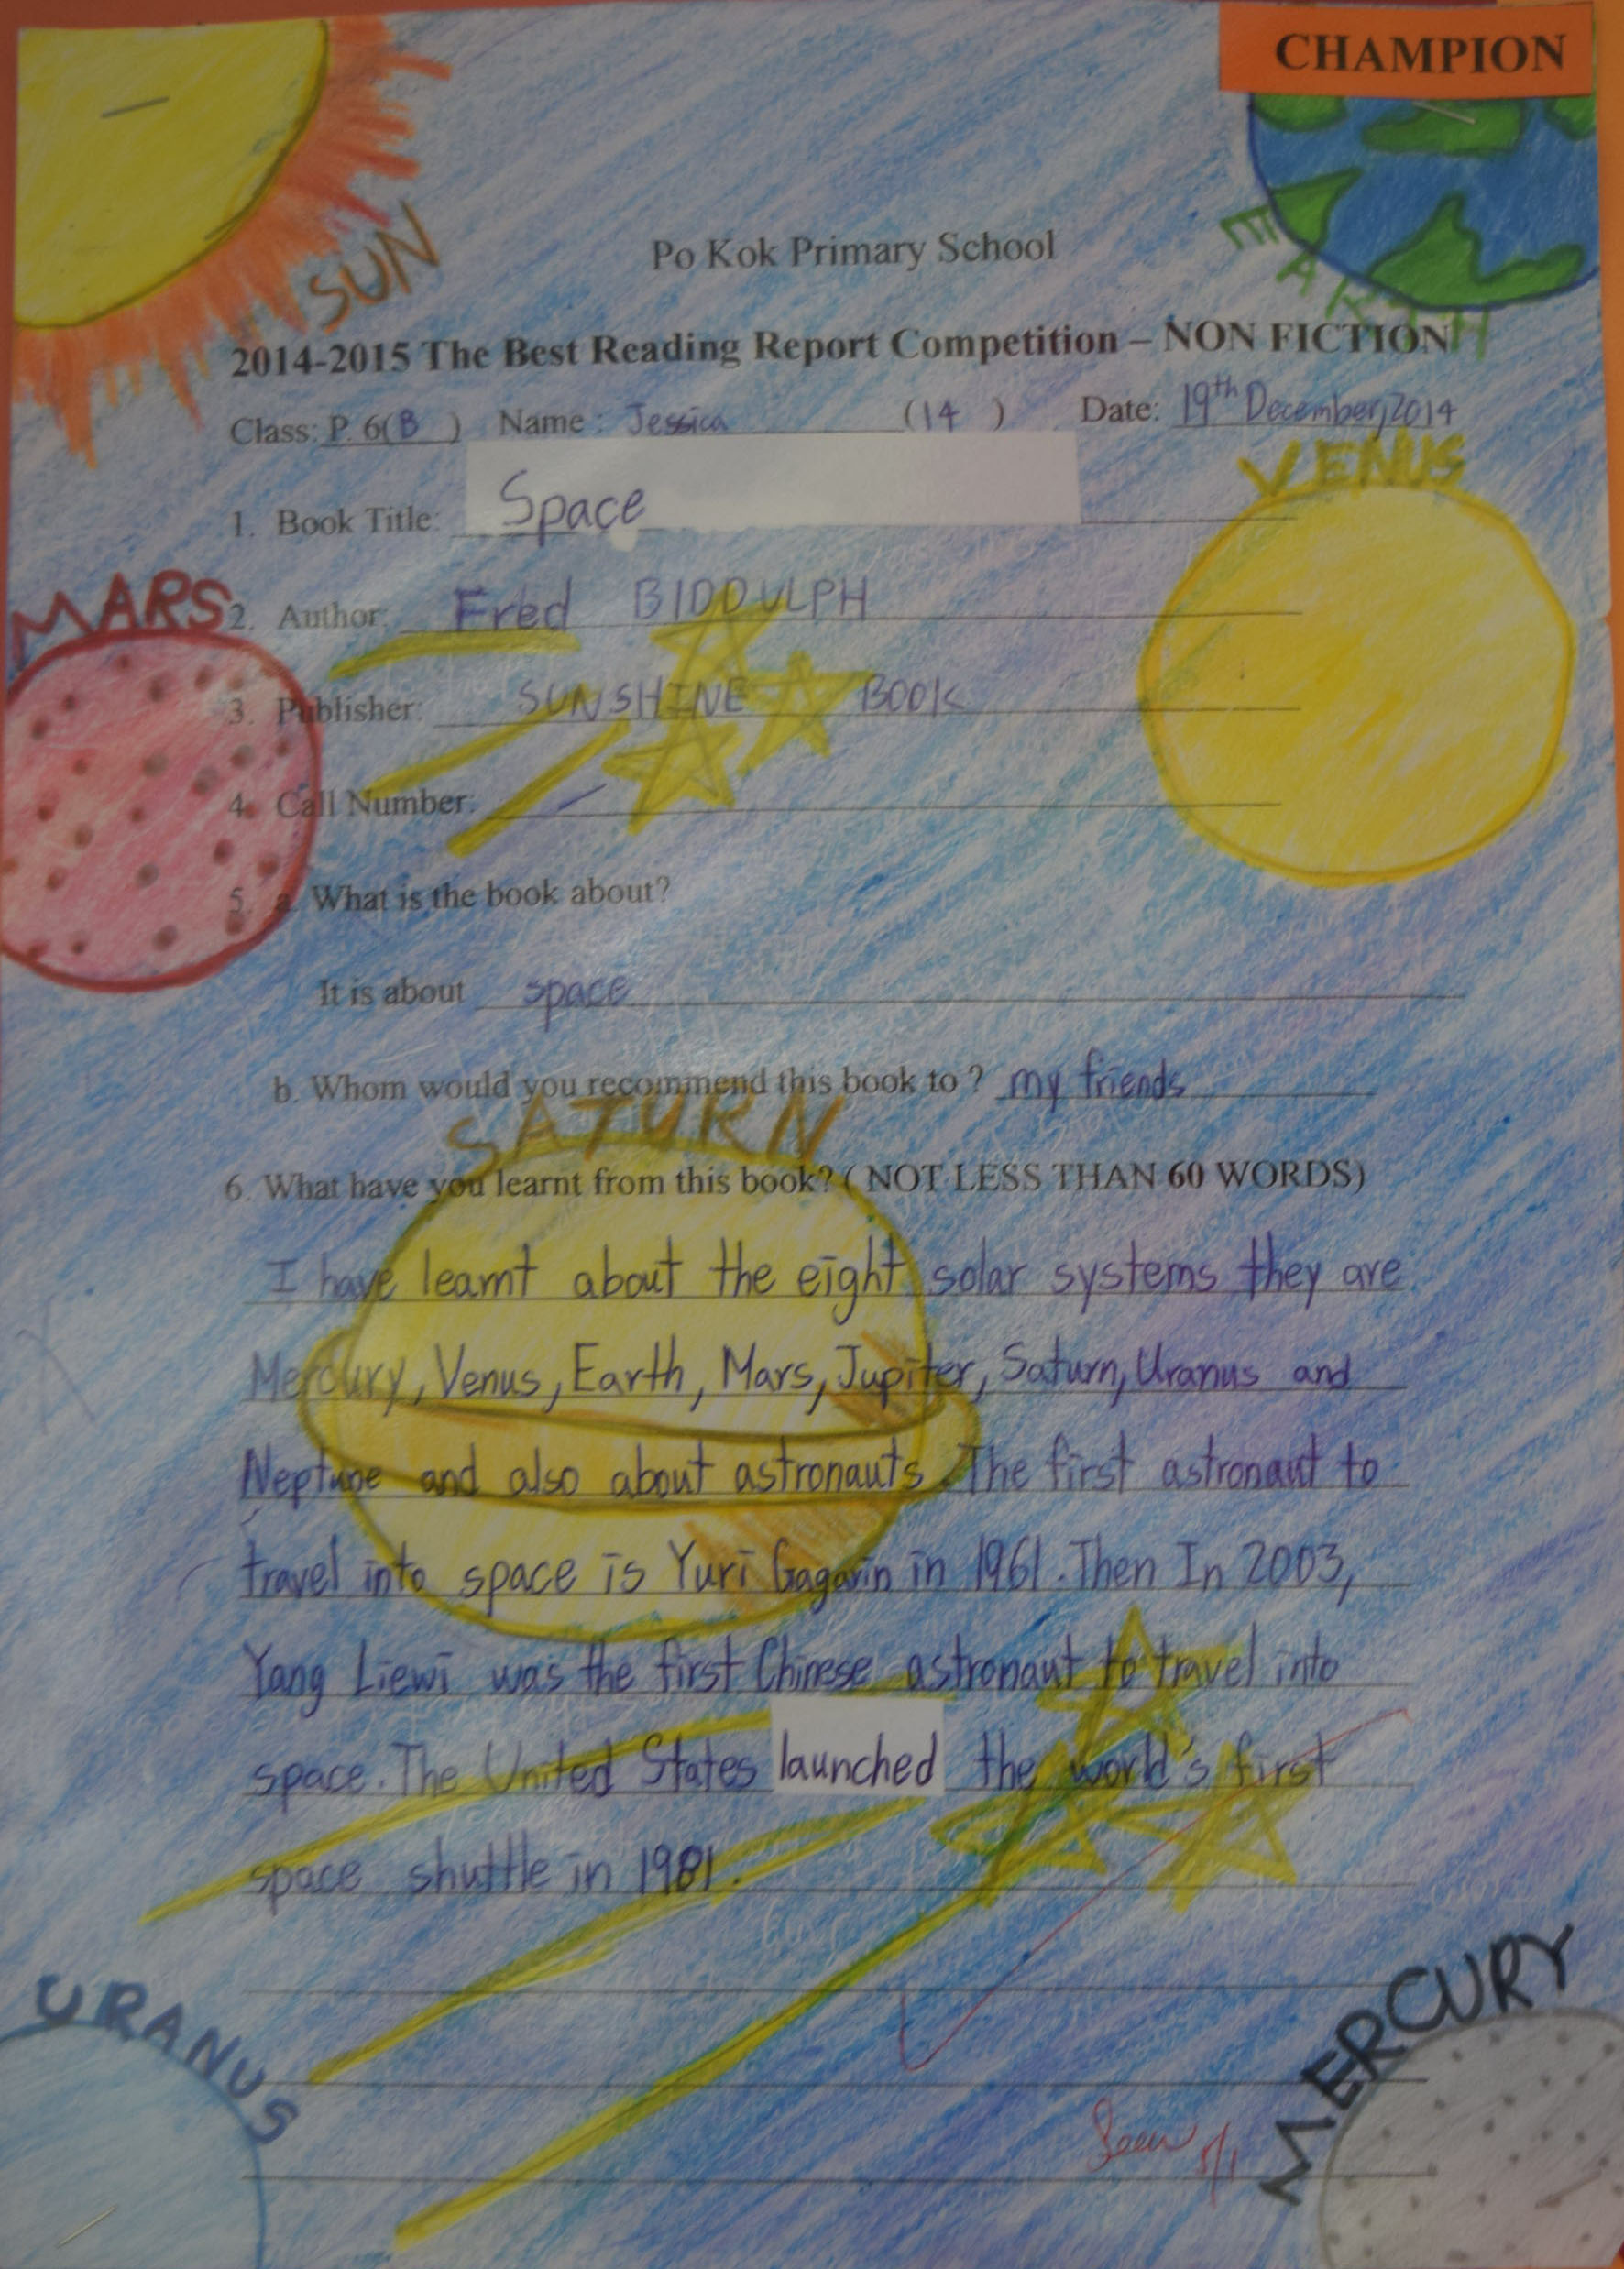 CHAMPION
SUN
EARTH
Po Kok Primary School
2014-2015 The Best Reading Report Competition – NON FICTION
Class: P. 6(B ) Name : Jessica (14 ) Date: 19th December, 2014
VENUS
1. Book Title: Space
MARS
2. Author: Fred BIDDULPH
3. Publisher: SUNSHINE BOOK
4. Call Number:
5. a. What is the book about?
It is about space
b. Whom would you recommend this book to ? my friends
SATURN
6. What have you learnt from this book? ( NOT LESS THAN 60 WORDS)
I have learnt about the eight solar systems they are
Mercury, Venus, Earth, Mars, Jupiter, Saturn, Uranus and
Neptune and also about astronauts. The first astronaut to
travel into space is Yuri Gagarin in 1961. Then In 2003,
Yang Liewi was the first Chinese astronaut to travel into
space. The United States launched the world's first
space shuttle in 1981.
URANUS
MERCURY
5/1